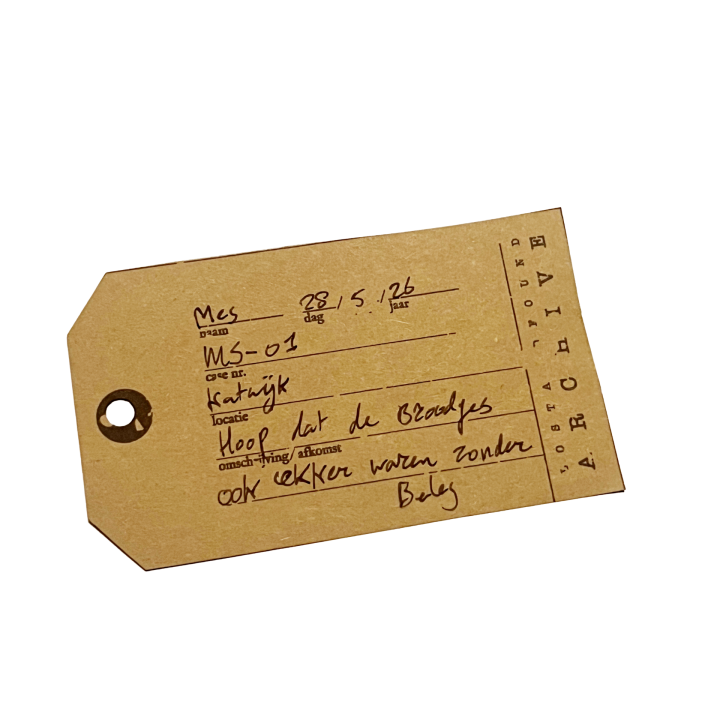 Mes 28 / 5 / 26
naam dag jaar
MS-01
case nr.
Katwijk
locatie
Hoop dat de Broodjes
omschrijving/ afkomst
ook lekker waren zonder
Beleg
LOST & FOUND
ARCHIVE